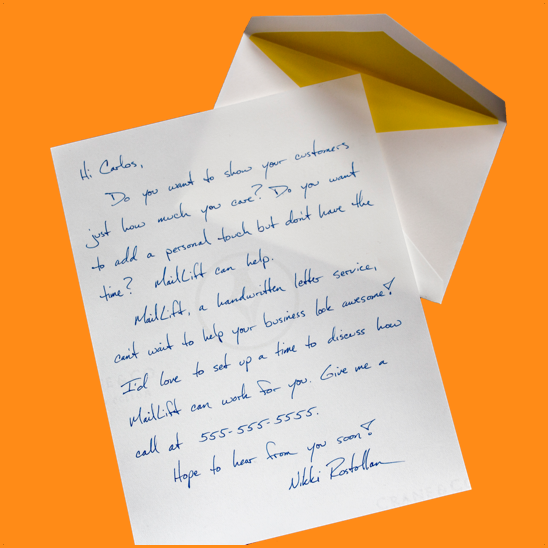 Hi Carlos,
Do you want to show your customers
just how much you care? Do you want
to add a personal touch but don't have the
time? MailLift can help.
MailLift, a handwritten letter service,
can't wait to help your business look awesome!
I'd love to set up a time to discuss how
MailLift can work for you. Give me a
call at 555-555-5555.
Hope to hear from you soon!
Nikki Rostollan